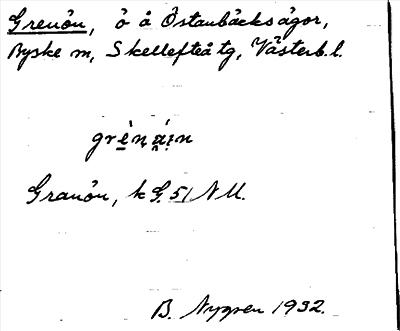 Grenön, ö å Östanbäcksågor,
Byske sn, Skellefteå tg, Västerb. l.
Granön, k G. 51 N U.
B. Nygren 1932.